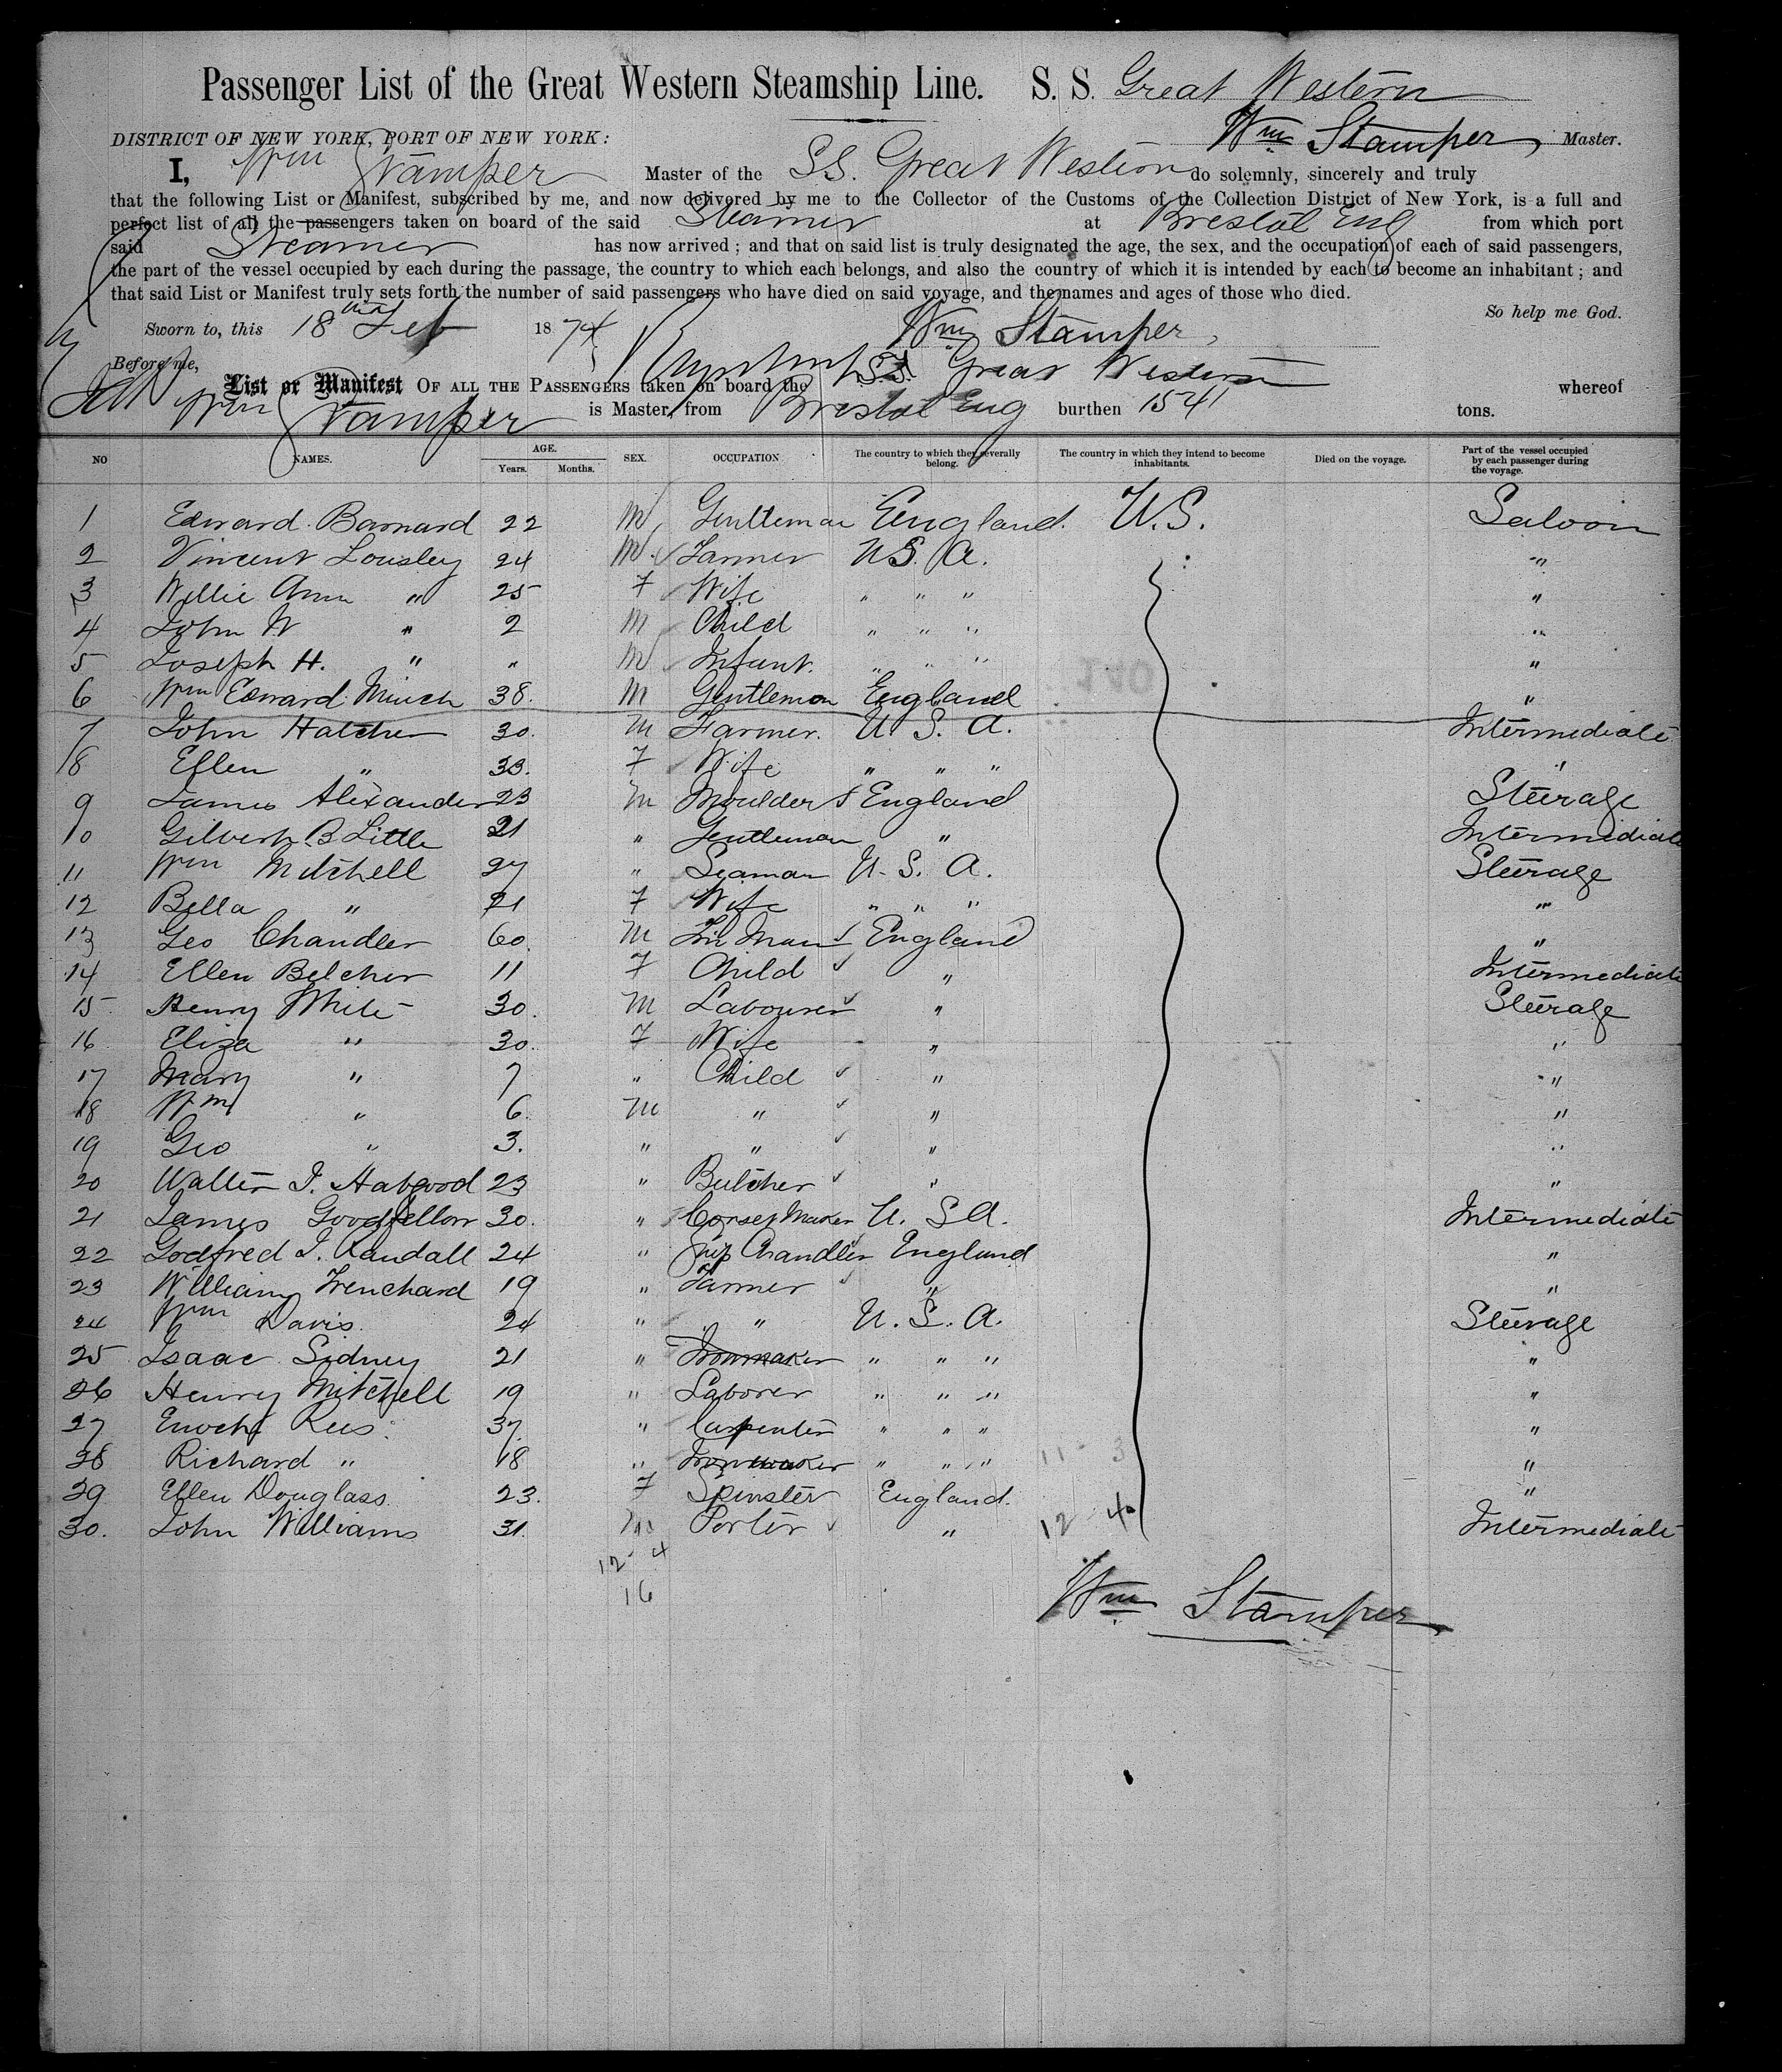 Passenger List of the Great Western Steamship Line. S. S. Great Western
DISTRICT OF NEW YORK, PORT OF NEW YORK: Wm Stamper, Master.
I, Wm Stamper Master of the S.S. Great Western do solemnly, sincerely and truly
that the following List or Manifest, subscribed by me, and now delivered by me to the Collector of the Customs of the Collection District of New York, is a full and
perfect list of all the passengers taken on board of the said Steamer at Bristol Eng from which port
said Steamer has now arrived; and that on said list is truly designated the age, the sex, and the occupation of each of said passengers,
the part of the vessel occupied by each during the passage, the country to which each belongs, and also the country of which it is intended by each to become an inhabitant; and
that said List or Manifest truly sets forth the number of said passengers who have died on said voyage, and the names and ages of those who died.
So help me God.
Sworn to, this 18 Feb 1874 Wm Stamper,
Before me,
List or Manifest OF ALL THE PASSENGERS taken on board the S.S. Great Western whereof
Wm Stamper is Master, from Bristol Eng burthen 1541 tons.
NO NAMES. AGE. Years. Months. SEX. OCCUPATION The country to which they severally belong. The country in which they intend to become inhabitants. Died on the voyage. Part of the vessel occupied by each passenger during the voyage.
1 Edward Barnard 22 M Gentleman England U.S. Saloon
2 Vincent Lousley 24 M. Farmer U S. A. "
3 Willie Ann " 25 F Wife " " " "
4 John W " 2 M Child " " " "
5 Joseph H. " " M Infant. " " " "
6 Wm Edward Minch 38. M Gentleman England "
7 John Hatcher 30. M Farmer. U S. A. Intermediate
8 Ellen " 33. F Wife " " " "
9 James Alexander 23 M Moulder England Steerage
10 Gilbert B Little 21 " Gentleman " Intermediate
11 Wm Mitchell 27 " Seaman U. S. A. Steerage
12 Bella " 21 F Wife " " " "
13 Geo Chandler 60. M Tin Man England "
14 Ellen Belcher 11 F Child " Intermediate
15 Henry White 30. M Labourer " Steerage
16 Eliza " 30. F Wife " "
17 Mary " 7 " Child " "
18 Wm " 6. M " " "
19 Geo " 3. " " " "
20 Walter J. Habgood 23 " Butcher " "
21 James Goodfellow 30. " Corset Maker U. S A. Intermediate
22 Godfred J. Randall 24 " Ship Chandler England "
23 William Trenchard 19 " Farmer " "
24 Wm Davis 24 " " U. S. A. Steerage
25 Isaac Sidney 21 " Ironmaker " " " "
26 Henry Mitchell 19 " Laborer " " " "
27 Enoch Rees 37. " Carpenter " " " "
28 Richard " 18 " Ironmaker " " " "
29 Ellen Douglass 23. F Spinster England. "
30. John Williams 31. M Porter " Intermediate
11 3
12 4
12 4
16
Wm Stamper